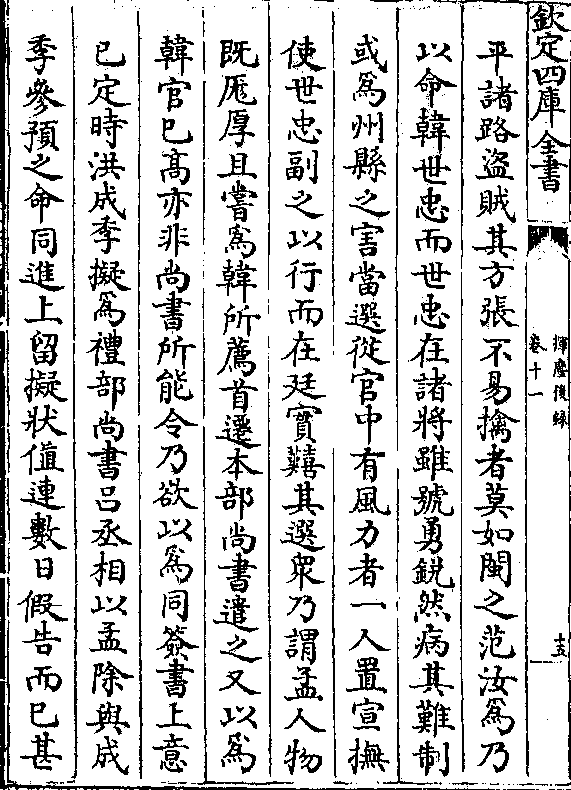 欽定四庫全書
揮麈後録
卷十一
十五
平諸路盜賊其方張不易擒者莫如閩之范汝爲乃
以命韓世忠而世忠在諸將雖號勇銳然病其難制
或爲州縣之害當選從官中有風力者一人置宣撫
使世忠副之以行而在廷實艱其選衆乃謂孟人物
既厖厚且嘗爲韓所薦首遷本部尚書遣之又以爲
韓官已髙亦非尚書所能令乃欲以爲同簽書上意
已定時洪成季擬爲禮部尚書吕丞相以孟除與成
季參預之命同進上留擬狀值連數日假告而已甚